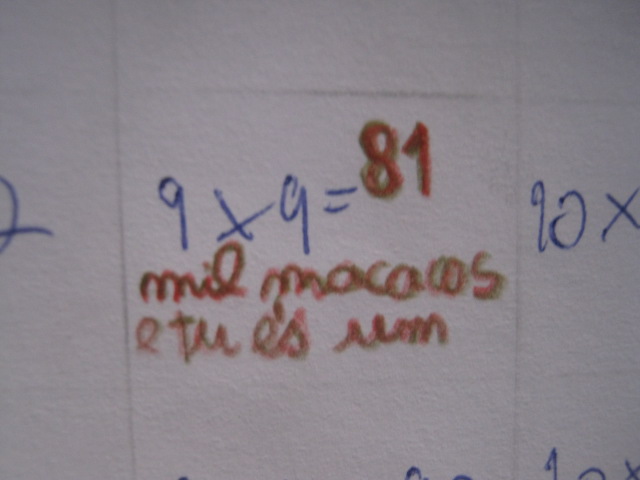 9 x 9 = 81
mil macacos
e tu és um
10 x